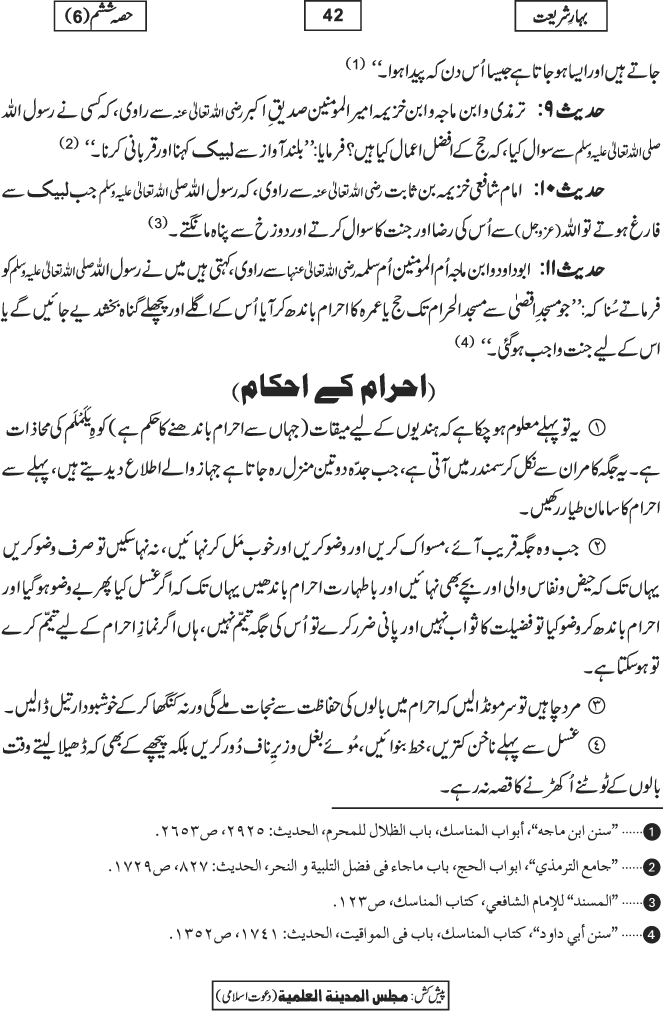 بہارِ شریعت 42 حصہ ششم (6)
جاتے ہیں اور ایسا ہو جاتا ہے جیسا اُس دن کہ پیدا ہوا۔‘‘ (1)
حدیث ۹: ترمذی و ابن ماجہ و ابن خزیمہ امیر المؤمنین صدیقِ اکبر رضی اللہ تعالیٰ عنہ سے راوی، کہ کسی نے رسول اللہ
صلی اللہ تعالیٰ علیہ وسلم سے سوال کیا، کہ حج کے افضل اعمال کیا ہیں؟ فرمایا: ’’بلند آواز سے لبیک کہنا اور قربانی کرنا۔‘‘ (2)
حدیث ۱۰: امام شافعی خزیمہ بن ثابت رضی اللہ تعالیٰ عنہ سے راوی، کہ رسول اللہ صلی اللہ تعالیٰ علیہ وسلم جب لبیک سے
فارغ ہوتے تو اللہ (عزوجل) سے اُس کی رضا اور جنت کا سوال کرتے اور دوزخ سے پناہ مانگتے۔ (3)
حدیث ۱۱: ابو داود و ابن ماجہ اُم المؤمنین اُم سلمہ رضی اللہ تعالیٰ عنہا سے راوی، کہتی ہیں میں نے رسول اللہ صلی اللہ تعالیٰ علیہ وسلم کو
فرماتے سُنا کہ: ’’جو مسجدِ اقصیٰ سے مسجد الحرام تک حج یا عمرہ کا احرام باندھ کر آیا اُس کے اگلے اور پچھلے گناہ بخش دیے جائیں گے یا
اس کے لیے جنت واجب ہوگئی۔‘‘ (4)
(احرام کے احکام)
① یہ تو پہلے معلوم ہو چکا ہے کہ ہندیوں کے لیے میقات (جہاں سے احرام باندھنے کا حکم ہے) کوہِ یَلَمْلَم کی محاذات
ہے۔ یہ جگہ کامران سے نکل کر سمندر میں آتی ہے، جب جدّہ دو تین منزل رہ جاتا ہے جہاز والے اطلاع دیدیتے ہیں، پہلے سے
احرام کا سامان طیار رکھیں۔
② جب وہ جگہ قریب آئے، مسواک کریں اور وضو کریں اور خوب مَل کر نہائیں، نہ نہا سکیں تو صرف وضو کریں
یہاں تک کہ حیض و نفاس والی اور بچے بھی نہائیں اور باطہارت احرام باندھیں یہاں تک کہ اگر غسل کیا پھر بے وضو ہوگیا اور
احرام باندھ کر وضو کیا تو فضیلت کا ثواب نہیں اور پانی ضرر کرے تو اُس کی جگہ تیمّم نہیں، ہاں اگر نمازِ احرام کے لیے تیمّم کرے
تو ہوسکتا ہے۔
③ مرد چاہیں تو سر مونڈالیں کہ احرام میں بالوں کی حفاظت سے نجات ملے گی ورنہ کنگھا کر کے خوشبودار تیل ڈالیں۔
④ غسل سے پہلے ناخن کتریں، خط بنوائیں، مُوئے بغل و زیرِ ناف دُور کریں بلکہ پیچھے کے بھی کہ ڈھیلا لیتے وقت
بالوں کے ٹوٹنے اُکھڑنے کا قصہ نہ رہے۔
❶...... ”سنن ابن ماجه“، أبواب المناسك، باب الظلال للمحرم، الحدیث: ۲۹۲۵، ص۲۶۵۳.
❷...... ”جامع الترمذي“، ابواب الحج، باب ماجاء فی فضل التلبية و النحر، الحدیث: ۸۲۷، ص۱۷۲۹.
❸...... ”المسند“ للإمام الشافعي، کتاب المناسك، ص۱۲۳.
❹...... ”سنن أبي داود“، کتاب المناسك، باب فی المواقیت، الحدیث: ۱۷۴۱، ص۱۳۵۲.
پیش کش: مجلس المدینة العلمیة (دعوت اسلامی)